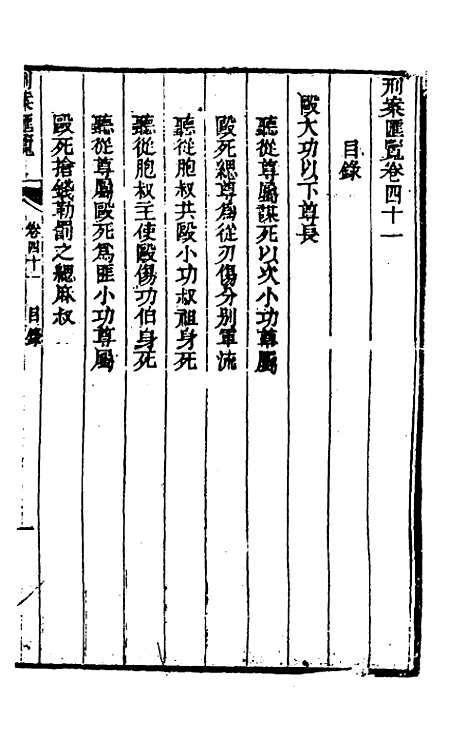 刑案匯覽卷四十一
目錄
毆大功以下尊長
聽從尊屬謀死以次小功尊屬
毆死緦尊爲從刃傷分別軍流
聽從胞叔共毆小功叔祖身死
聽從胞叔主使毆傷功伯身死
聽從尊屬毆死爲匪小功尊屬
毆死搶錢勒罰之緦麻叔
刑案匯覽
卷四十一
目錄